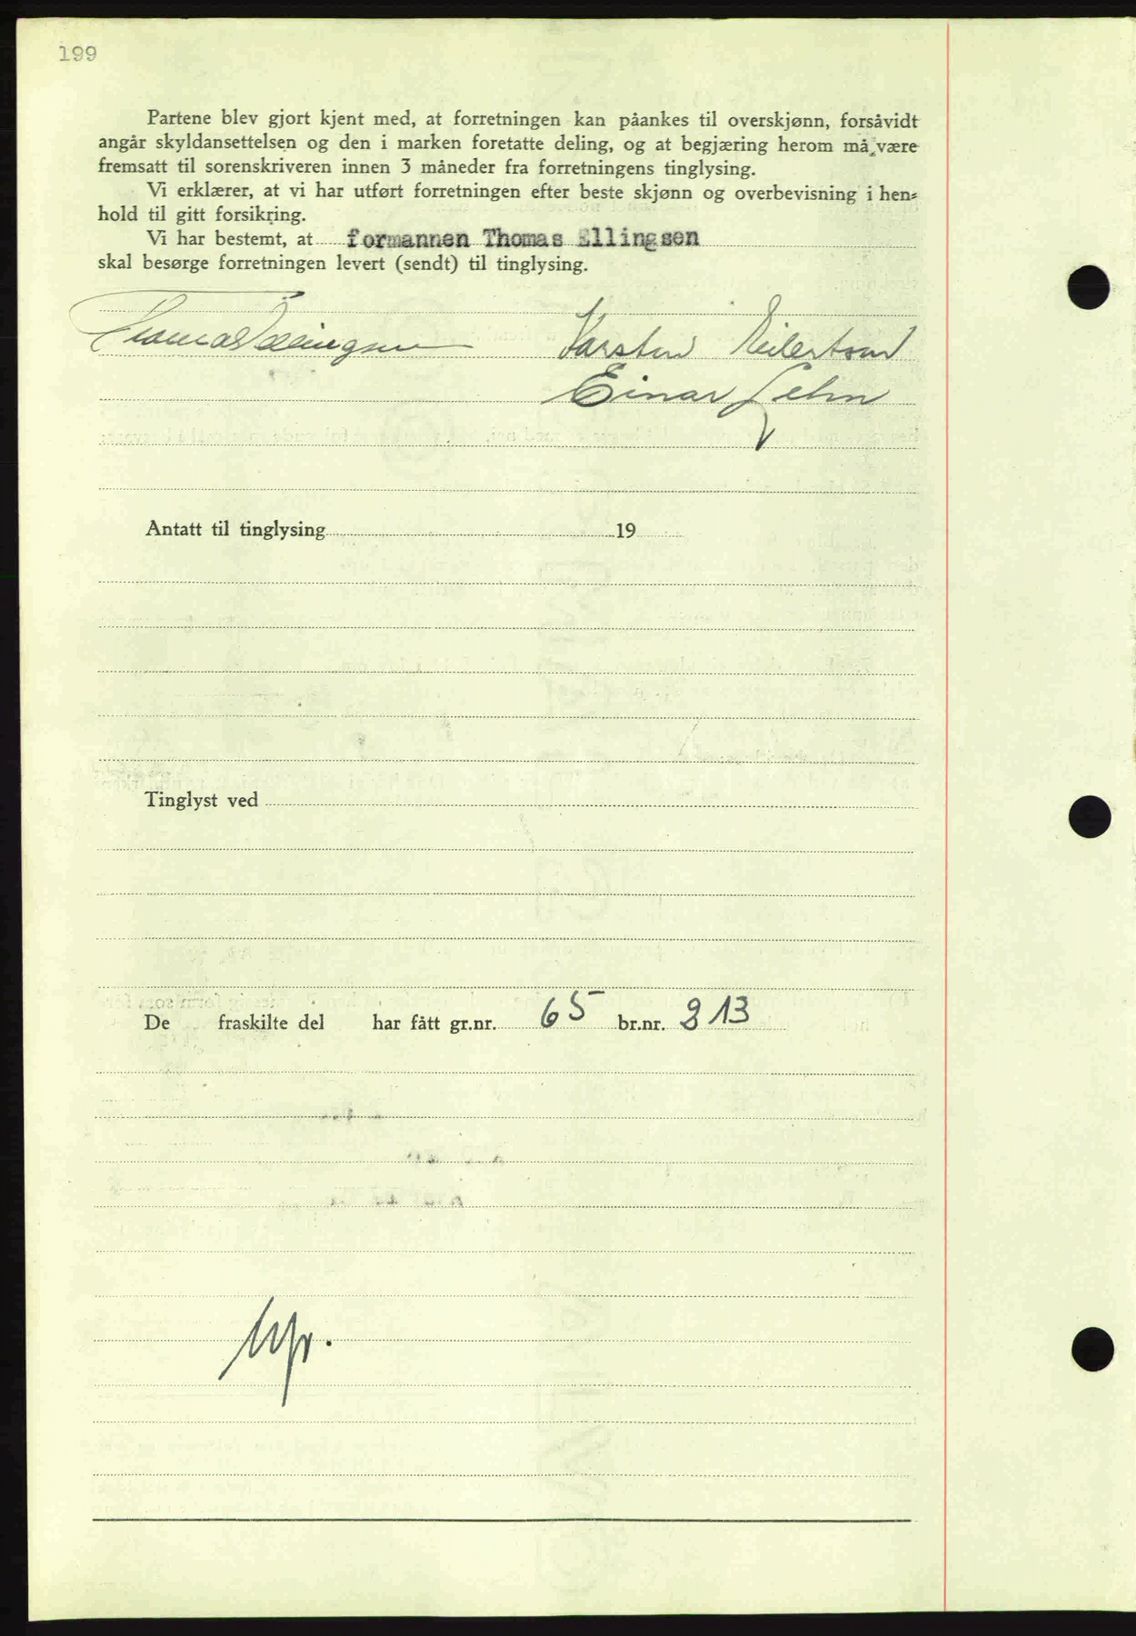 199
Partene blev gjort kjent med, at forretningen kan påankes til overskjønn, forsåvidt
angår skyldansettelsen og den i marken foretatte deling, og at begjæring herom må være
fremsatt til sorenskriveren innen 3 måneder fra forretningens tinglysing.
Vi erklærer, at vi har utført forretningen efter beste skjønn og overbevisning i hen-
hold til gitt forsikring.
Vi har bestemt, at formannen Thomas Ellingsen
skal besørge forretningen levert (sendt) til tinglysing.
Thomas Ellingsen Karsten Eilertsen
Einar Lehn
Antatt til tinglysing 19
Tinglyst ved
De fraskilte del har fått gr.nr. 65 br.nr. 213